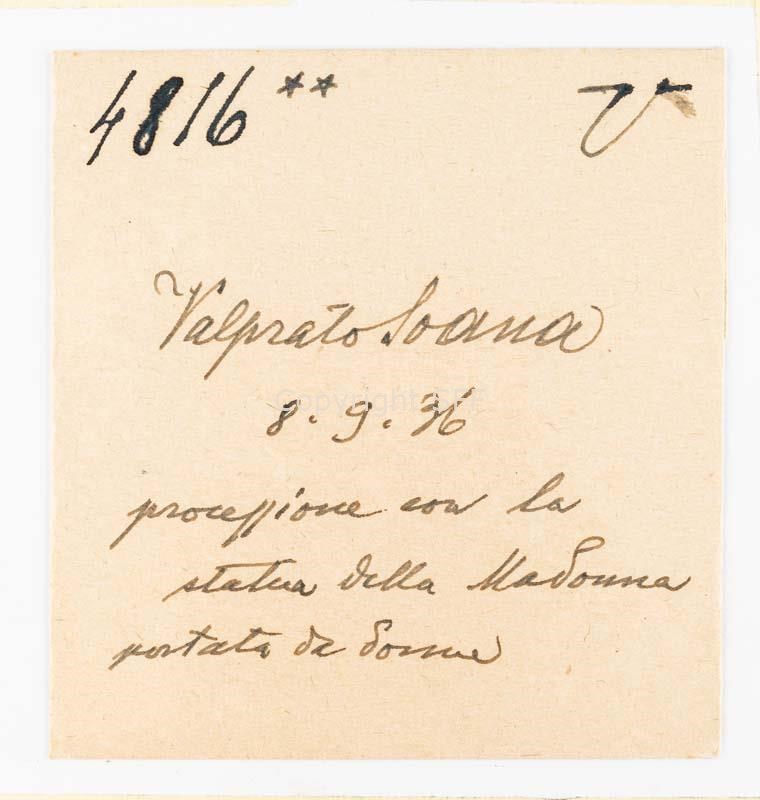 4816 ** V
Valprato Soana
8.9.36
processione con la
statua della Madonna
portata da donne